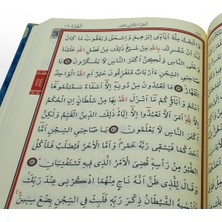 الجزء الثاني عشر
وَاتَّبَعْتُ مِلَّةَ اٰبَٓاء۪ٓي اِبْرٰه۪يمَ وَاِسْحٰقَ وَيَعْقُوبَ مَا كَانَ
لَنَٓا اَنْ نُشْرِكَ بِاللّٰهِ مِنْ شَيْءٍ ذٰلِكَ مِنْ فَضْلِ اللّٰهِ عَلَيْنَا
وَعَلَى النَّاسِ وَلٰكِنَّ اَكْثَرَ النَّاسِ لَا يَشْكُرُونَ
يَا صَاحِبَيِ السِّجْنِ ءَاَرْبَابٌ مُتَفَرِّقُونَ خَيْرٌ اَمِ اللّٰهُ الْوَاحِدُ
الْقَهَّارُ مَا تَعْبُدُونَ مِنْ دُونِه۪ٓ اِلَّٓا اَسْمَٓاءً سَمَّيْتُمُوهَٓا
اَنْتُمْ وَاٰبَٓاؤُ۬كُمْ مَٓا اَنْزَلَ اللّٰهُ بِهَا مِنْ سُلْطَانٍ اِنِ الْحُكْمُ
اِلَّا لِلّٰهِ اَمَرَ اَلَّا تَعْبُدُٓوا اِلَّٓا اِيَّاهُ ذٰلِكَ الدّ۪ينُ الْقَيِّمُ وَلٰكِنَّ
اَكْثَرَ النَّاسِ لَا يَعْلَمُونَ يَا صَاحِبَيِ السِّجْنِ اَمَّٓا
اَحَدُكُمَا فَيَسْق۪ي رَبَّهُ خَمْرًا وَاَمَّا الْاٰخَرُ فَيُصْلَبُ فَتَأْكُلُ
الطَّيْرُ مِنْ رَأْسِه۪ قُضِيَ الْاَمْرُ الَّذ۪ي ف۪يهِ تَسْتَفْتِيَانِ
وَقَالَ لِلَّذ۪ي ظَنَّ اَنَّهُ نَاجٍ مِنْهُمَا اذْكُرْن۪ي عِنْدَ رَبِّكَ
فَاَنْسٰيهُ الشَّيْطَانُ ذِكْرَ رَبِّه۪ فَلَبِثَ فِي السِّجْنِ بِضْعَ سِن۪ينَ